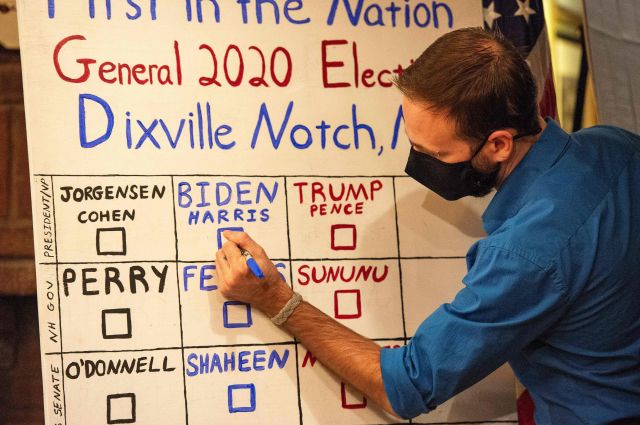 First in the Nation
General 2020 Electi
Dixville Notch,
PRESIDENT/VP
JORGENSEN BIDEN TRUMP
COHEN HARRIS PENCE
NH GOV.
PERRY SUNUNU
SENATE
O'DONNELL SHAHEEN